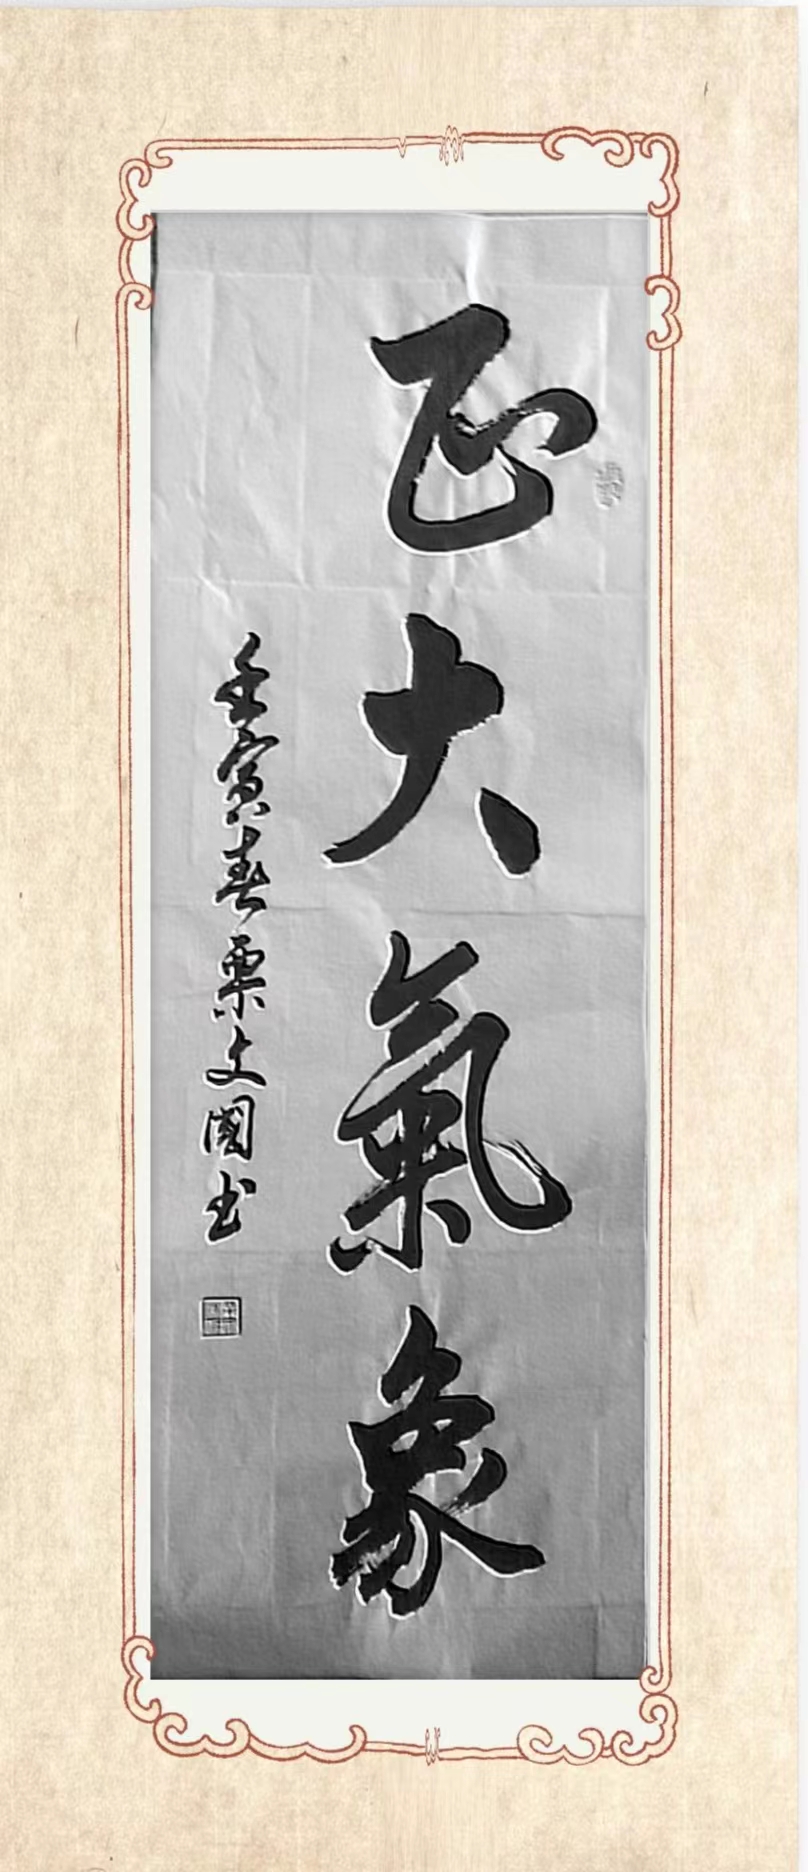 正大氣象
壬寅春栗文國书